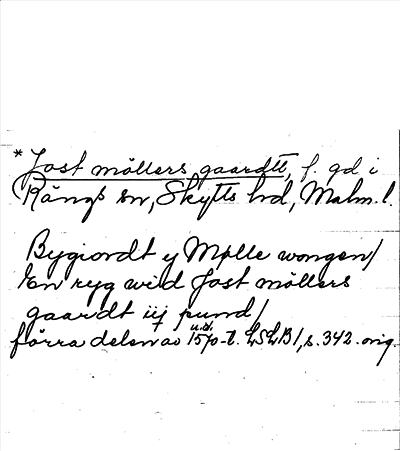 * Jost møllers gaardtt, f. gd i
Rängs sn, Skytts hd, Malm. l.
Bygiordt y Mølle wongen/
En ryg wid Jost møllers
gaardt iij pund/
förra delen av u.d. 1570-t. LSLB 1, s. 342. orig.